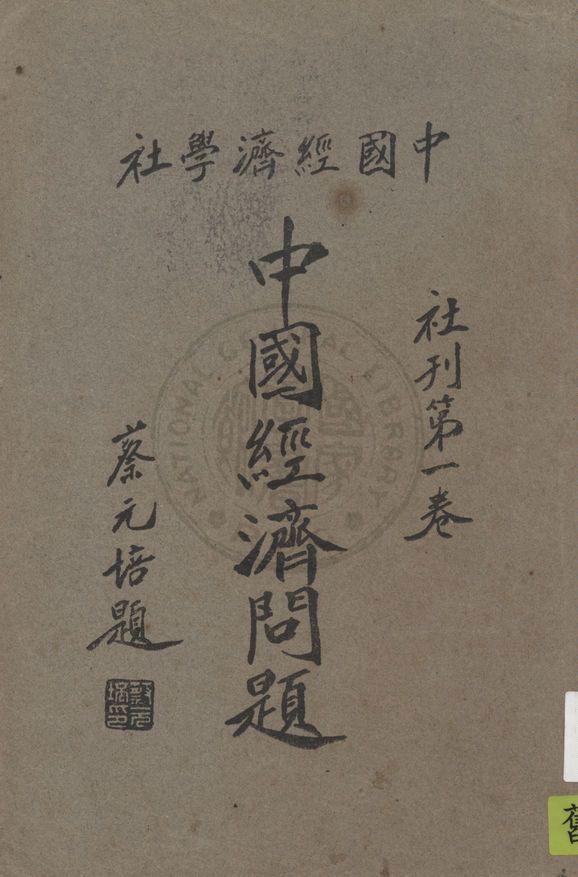 中國經濟學社
社刊第一卷
中國經濟問題
蔡元培題
蔡元培印
NATIONAL CENTRAL LIBRARY
舊